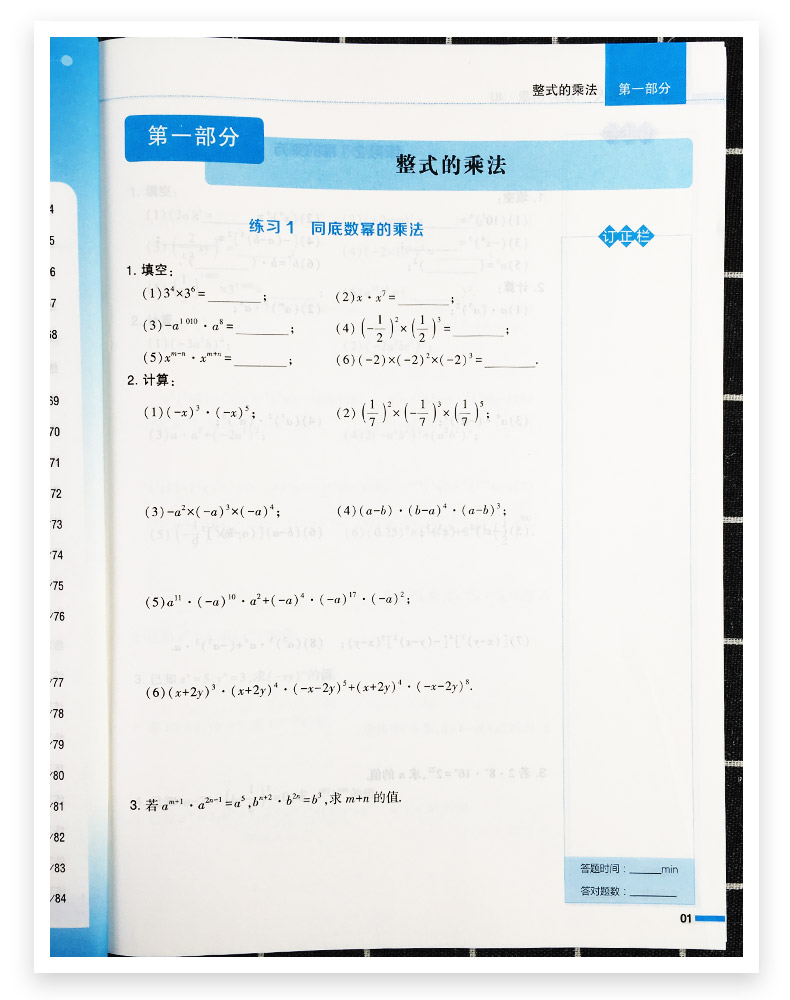 整式的乘法 第一部分
第一部分
整式的乘法
练习1 同底数幂的乘法
订正栏
1. 填空：
(1)3⁴×3⁶=______； (2)x·x⁷=______；
(3)-a¹⁰¹⁰·a⁸=______； (4)(-1/2)²×(1/2)³=______；
(5)xᵐ⁻ⁿ·xᵐ⁺ⁿ=______； (6)(-2)×(-2)²×(-2)³=______.
2. 计算：
(1)(-x)³·(-x)⁵； (2)(1/7)²×(-1/7)³×(1/7)⁵；
(3)-a²×(-a)³×(-a)⁴； (4)(a-b)·(b-a)⁴·(a-b)³；
(5)a¹¹·(-a)¹⁰·a²+(-a)⁴·(-a)¹⁷·(-a)²；
(6)(x+2y)³·(x+2y)⁴·(-x-2y)⁵+(x+2y)⁴·(-x-2y)⁸.
3. 若aᵐ⁺¹·a²ⁿ⁻¹=a⁵,bⁿ⁺²·b²ⁿ=b³,求m+n的值.
答题时间：______min
答对题数：______
01
4
5
6
67
68
69
70
71
72
73
74
75
76
77
78
79
80
81
82
83
84